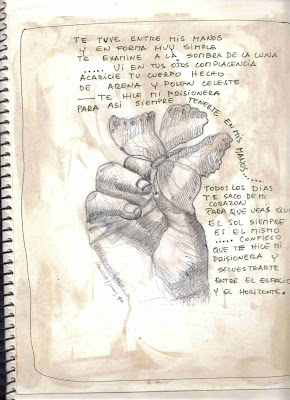 TE TUVE ENTRE MIS MANOS
Y EN FORMA MUY SIMPLE
TE EXAMINE A LA SOMBRA DE LA LUNA
..... VI EN TUS OJOS COMPLACENCIA
ACARICIE TU CUERPO HECHO
DE ARENA Y POLEN CELESTE
— TE HICE MI PRISIONERA
PARA ASI SIEMPRE TENERTE EN MIS MANOS....
TODOS LOS DIAS
TE SACO DE MI
CORAZON
PARA QUE VEAS QUE
EL SOL SIEMPRE
ES EL MISMO
..... CONFIECO
QUE TE HICE MI
PRISIONERA Y
SECUESTRARTE
ENTRE EL ESPACIO
Y EL HORIZONTE.